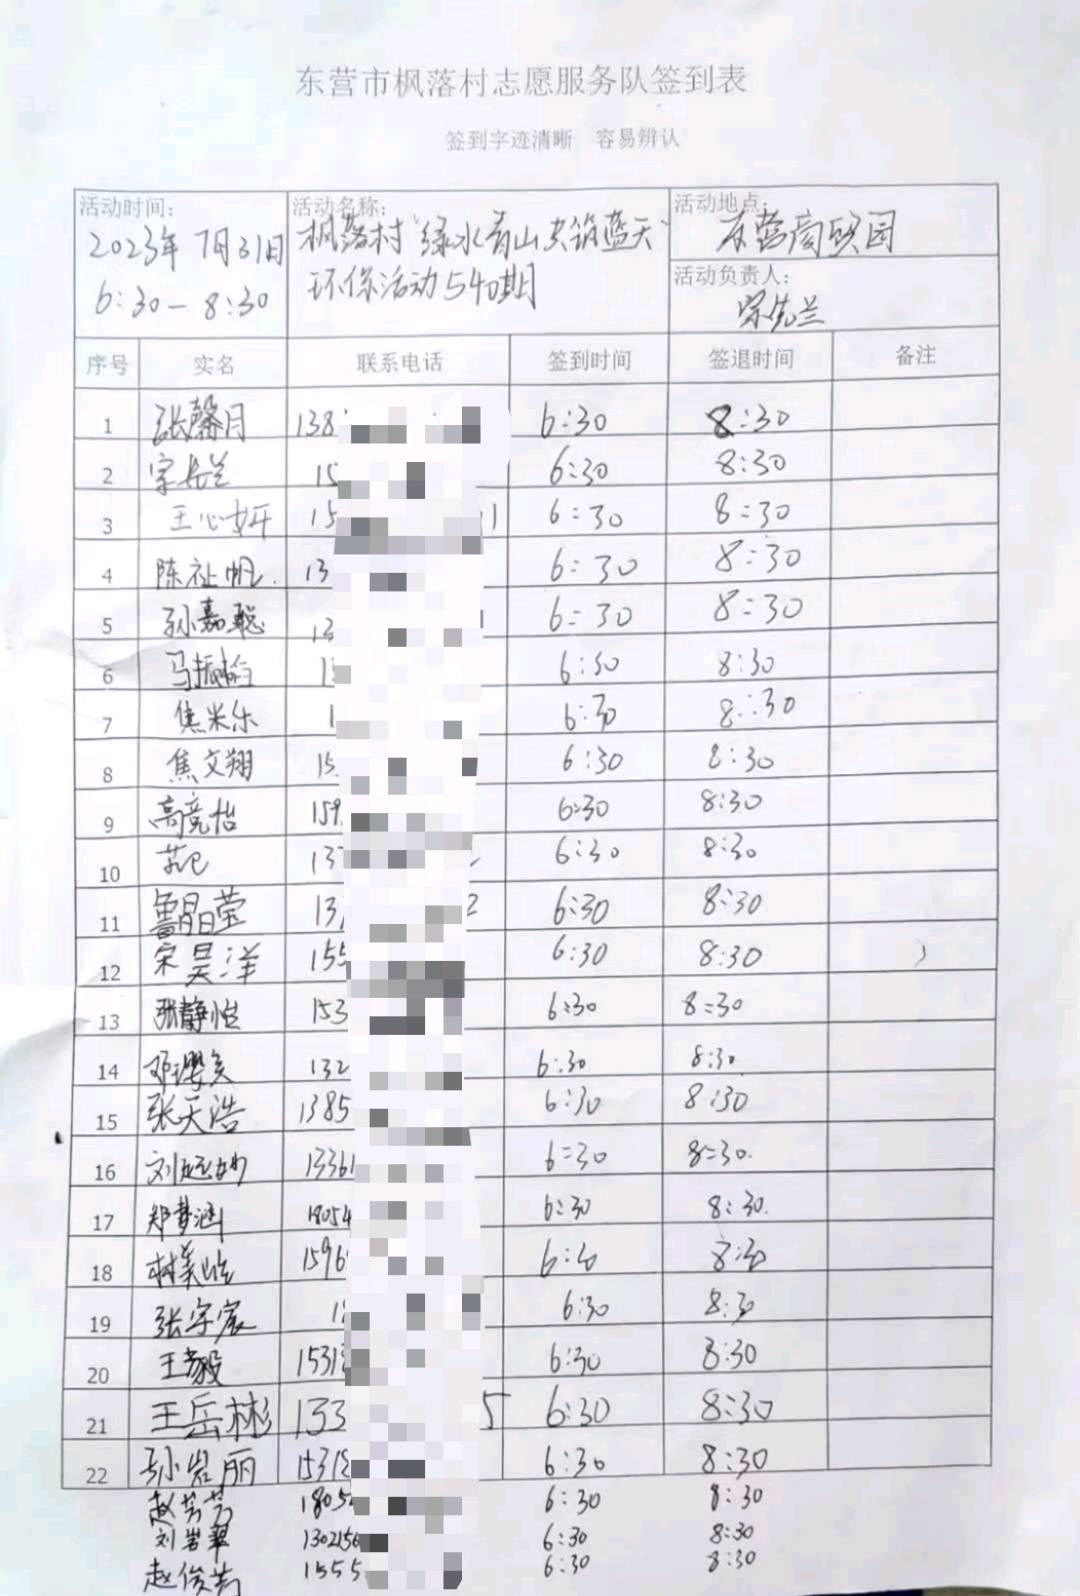 东营市枫落村志愿服务队签到表
签到字迹清晰 容易辨认
活动时间: 2023年7月31日 6:30-8:30
活动名称: 枫落村"绿水青山共筑蓝天" 环保活动540期
活动地点: 东营商贸园
活动负责人: 宗先兰
序号 实名 联系电话 签到时间 签退时间 备注
1 张馨月 138 6:30 8:30
2 15 6:30 8:30
3 王心妍 15 1 6:30 8:30
4 陈祉帆 13 6:30 8:30
5 孙嘉聪 13 6:30 8:30
6 马振 1 6:30 8:30
7 焦米乐 1 6:30 8:30
8 焦文翔 15 6:30 8:30
9 高竞怡 159 6:30 8:30
10 13 6:30 8:30
11 鲁晶莹 13 2 6:30 8:30
12 宋昊洋 155 6:30 8:30
13 张静怡 153 6:30 8:30
14 邓璎 132 6:30 8:30
15 张天浩 1385 6:30 8:30
16 刘 13361 6:30 8:30
17 郑梦涵 18054 6:30 8:30
18 林美 1596 6:30 8:30
19 张宇宸 1 6:30 8:30
20 王毅 1531 6:30 8:30
21 王岳彬 133 5 6:30 8:30
22 孙岩丽 1531 6:30 8:30
赵芳芳 1805 6:30 8:30
刘岩翠 1302156 6:30 8:30
赵俊芳 1555 6:30 8:30